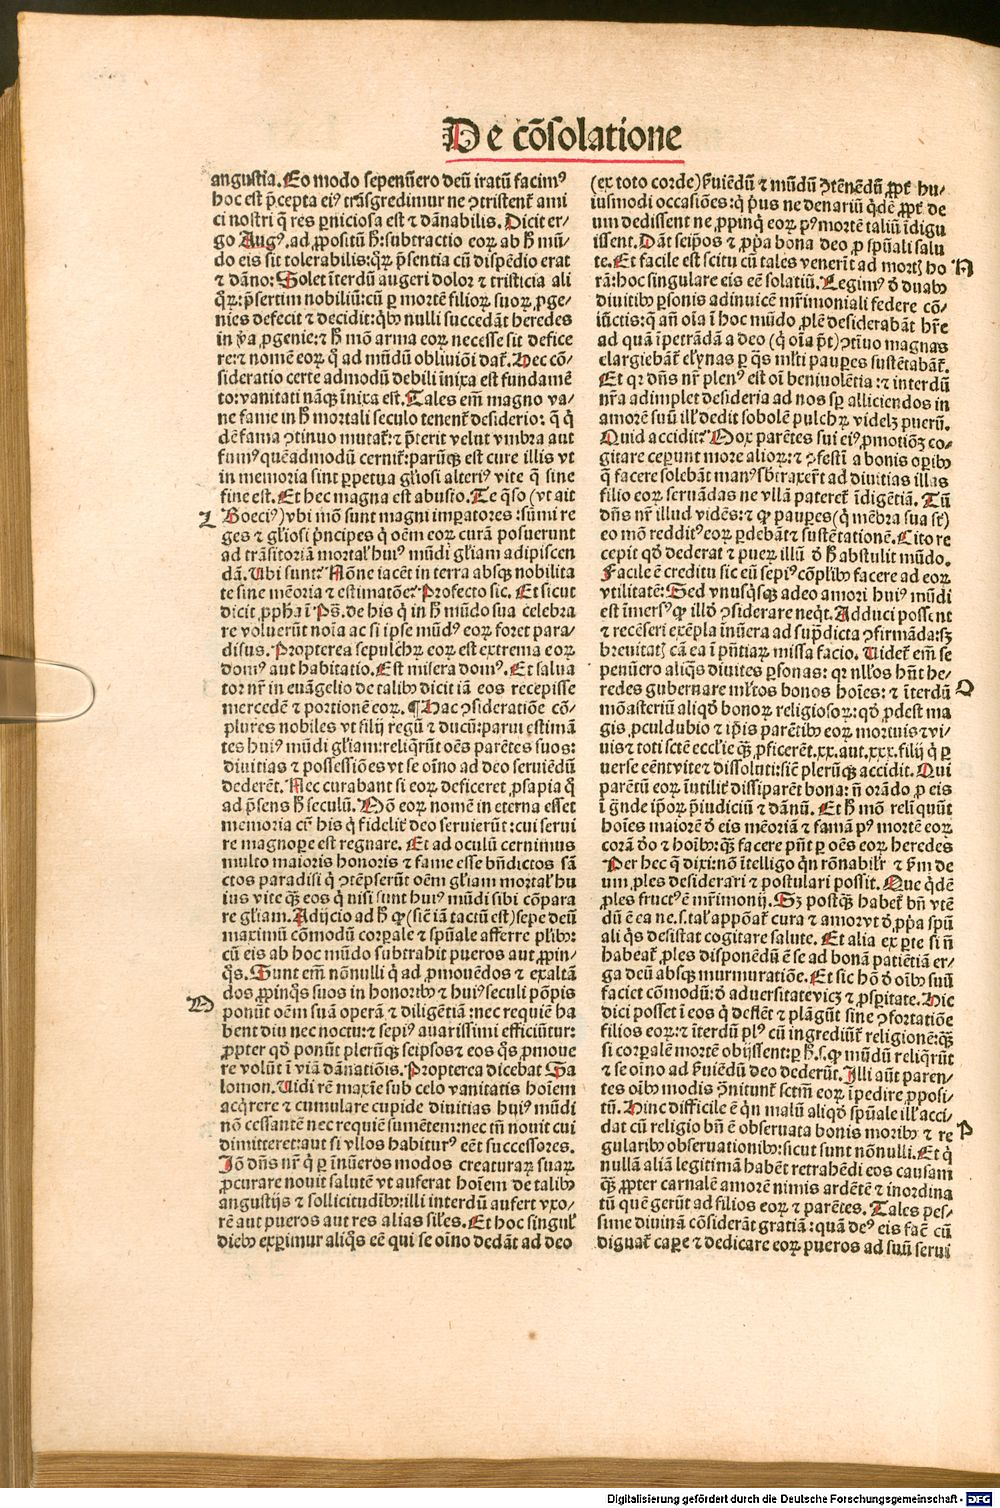 De cōsolatione
angustia. Eo modo sepenūero deū iratū facimꝰ
hoc est p̄cepta eiꝰ trāsgredimur ne ꝯtristent᷑ ami
ci nostri q̄ res ꝑniciosa est ⁊ dānabilis. Dicit er-
go Augꝰ. ad ꝓpositū h̄: subtractio eoꝝ ab h̄ mū-
do eis sit tolerabilis: qꝝ p̄sentia cū dispēdio erat
⁊ dāno: Solet īterdū augeri dolor ⁊ tristicia ali
qꝝ: p̄sertim nobiliū: cū ꝑ mortē filioꝝ suoꝝ ꝓge-
nies defecit ⁊ decidit: qbꝰ nulli succedāt heredes
in ꝓgenie: ⁊ h̄ mō arma eoꝝ necesse sit defice
re: ⁊ nomē eoꝝ q̄ ad mūdū obliuiōi dat᷑. Hec cō-
sideratio certe admodū debili īnixa est fundamē
to: vanitati nāqꝫ īnixa est. Tales em̄ magno va-
ne fame in h̄ mortali seculo tenent᷑ desiderio: q̄ q̄
dē fama ꝯtinuo mutat᷑: ⁊ p̄terit velut vmbra aut
fumꝰ quēadmodū cernit᷑: parūqꝫ est cure illis vt
in memoria sint ꝑpetua gl̄iosi alteriꝰ vite q̄ sine
fine est. Et hec magna est abusio. Te q̄so (vt ait
L
Boeciꝰ) vbi mō sunt magni imꝑatores: sūmi re
ges ⁊ gl̄iosi p̄ncipes q̄ oēm eoꝝ curā posuerunt
ad trāsitoriā mortal᷑ huiꝰ mūdi gl̄iam adipiscen
dā. Ubi sunt? Nōne iacēt in terra absqꝫ nobilita
te sine mēoria ⁊ estimatōe? Profecto sic. Et sicut
dicit ꝓpha ī Ps̄. de his q̄ in h̄ mūdo sua celebra
re voluerūt noīa ac si ipse mūdꝰ eoꝝ foret para-
disus. Propterea sepulchꝝ eoꝝ est extrema eoꝝ
domꝰ aut habitatio. Est misera domꝰ. Et salua
tor nr̄ in euāgelio de talibꝰ dicit iā eos recepisse
mercedē ⁊ portionē eoꝝ. ¶ Hac ꝯsideratiōe cō-
plures nobiles vt filij regū ⁊ ducū: parui estimā
tes huiꝰ mūdi gl̄iam: reliq̄rūt oēs parētes suos:
diuitias ⁊ possessiōes vt se oīno ad deo seruiēdū
dederēt. Nec curabant si eoꝝ deficeret ꝓsapia q̄
ad p̄sens h̄ seculū. Nō eoꝝ nomē in eterna esset
memoria cū his q̄ fidelit̄ deo seruierūt: cui serui
re magnopere est regnare. Et ad oculū cernimus
multo maioris honoris ⁊ fame esse bn̄dictos sā
ctos paradisi q̄ ꝯtēpserūt oēm gl̄iam mortal᷑ hu
ius vite qꝫ eos q̄ nisi sunt huiꝰ mūdi sibi cōpara
re gl̄iam. Adijcio ad h̄ ꝙ (siē iā tactū est) sepe deū
maximū cōmodū corꝑale ⁊ spūale afferre pl̄ibꝰ:
cū eis ab hoc mūdo subtrahit pueros aut ꝓpin-
q̄s. Sunt em̄ nōnulli q̄ ad ꝓmouēdos ⁊ exaltā
dos ꝓpinq̄s suos in honoribꝰ ⁊ huiꝰ seculi pōpis
M
ponūt oēm suā operā ⁊ diligētiā: nec requiē ha
bent diu nec noctu: ⁊ sepiꝰ auarissimi efficiūtur:
ꝓpter qd̄ ponūt plerūqꝫ seipsos ⁊ eos q̄s ꝓmoue
re volūt ī viā dānatiōis. Propterea dicebat Sa
lomon. Uidi rē maxīe sub celo vanitatis hoīem
acq̄rere ⁊ cumulare cupide diuitias huiꝰ mūdi
nō cessantē nec requiē sumētem: nec tn̄ nouit cui
dimitteret: aut si vllos habiturꝰ eēt successores.
Jō dn̄s nr̄ q̄ ꝑ īnūeros modos creaturaꝝ suaꝝ
ꝓcurare nouit salutē vt auferat hoīem de talibꝰ
angustijs ⁊ sollicitudībꝰ: illi interdū aufert vxo-
rē aut pueros aut res alias siles. Et hoc singul᷑
diebꝰ exꝑimur aliq̄s eē qui se oīno dedāt ad deo
(ex toto corde) ẜuiēdū ⁊ mūdū ꝯtēnēdū ꝓpt̄ hu-
iusmodi occasiōes: q̄ pꝰus ne denariū q̄dē ꝓpt̄ de
um dedissent ne ꝓpinq̄ eoꝝ pꝰ mortē taliū īdigu
issent. Dāt seip̄os ⁊ ꝓp̄a bona deo ꝓ spūali salu
te. Et facile est scitu cū tales venerīt ad mortꝫ ho
N
rā: hoc singulare eis eē solatiū. Legimꝰ ō duabꝰ
diuitibꝰ ꝑsonis adinuicē mr̄imoniali federe cō-
iūctis: q̄ añ oīa ī hoc mūdo ꝓlē desiderabāt hr̄e
ad quā īpetrādā a deo (q̄ oīa pōt) ꝯtīuo magnas
elargiebāt᷑ el̄ynas ꝑ q̄s ml̄ti pauꝑes sustētabāt᷑.
Et qꝛ dn̄s nr̄ plenꝰ est oī beniuolētia: ⁊ interdū
nr̄a adimplet desideria ad nos sꝑ alliciendos in
amorē suū ill᷑ dedit sobolē pulchꝝ videlꝫ pueꝝ.
Quid accidit? Mox parētes sui eiꝰ ꝓmotiōꝫ co-
gitare ceperunt more alioꝝ: ⁊ ꝯfestī a bonis oꝑibꝰ
q̄ facere solebāt manꝰ sb̄traxer̄t ad diuitias illas
filio eoꝝ seruādas ne vllā pateret᷑ īdigētiā. Tū
dn̄s nr̄ illud vidēs: ⁊ ꝙ pauꝑes (q̄ mēbra sua st̄)
eo mō redditꝰ eoꝝ ꝑdebāt ⁊ sustētationē. Cito re
cepit qd̄ dederat ⁊ pueꝝ illū ō h̄ abstulit mūdo.
Facile ē creditu sic eū sepiꝰ cōpl̄ibꝰ facere ad eoꝝ
vtilitatē: Sed vnusq̄sqꝫ adeo amori huiꝰ mūdi
est īmersꝰ ꝙ illō ꝯsiderare neq̄t. Adduci possent
⁊ recēseri exēpla īnūera ad sup̄dicta ꝯfirmāda: sꝫ
breuitatꝫ cā ea ī pn̄tiaꝝ missa facio. Uidet᷑ em̄ se
penūero aliq̄s diuites ꝑsonas: qꝛ nll̄os hn̄t he-
redes gubernare ml̄tos bonos hoīes: ⁊ īterdū
O
mōasteriū aliqd̄ bonoꝝ religiosoꝝ: qd̄ ꝓdest ma
gis ꝓculdubio ⁊ ip̄is parētibꝰ eoꝝ mortuis ⁊ vi-
uis ⁊ toti sctē eccl̄ie qꝫ ꝓficerēt .xx. aut .xxx. filij q̄ ꝑ
uerse eēnt vite ⁊ dissoluti: siē plerūqꝫ accidit. Qui
parētū eoꝝ īutilit̄ dissiparēt bona: n̄ orādo ꝓ eis
ī ḡnde ip̄oꝝ p̄iudiciū ⁊ dānū. Et h̄ mō reliquūt
hoīes maiorē ō eis mēoriā ⁊ famā pꝰ mortē eoꝝ
corā d̄o ⁊ hoībꝰ: qꝫ facere pn̄t ꝑ oēs eoꝝ heredes
Per hec q̄ dixi: nō ītelligo q̄n rōnabilr̄ ⁊ ẜm de
um ꝓles desiderari ⁊ postulari possit. Que q̄dē
ꝓles fructꝰ ē mr̄imonij. Sꝫ postqꝫ habet᷑ bn̄ vtē
dū ē ea ne .s. tal᷑ appōat᷑ cura ⁊ amor vt ō ꝓp̄a spū
ali q̄s desistat cogitare salute. Et alia ex ꝑte si n̄
habeat᷑ ꝓles disponēdū ē se ad bonā patiētiā er-
ga deū absqꝫ murmuratiōe. Et sic hō ō oībꝰ suū
faciet cōmodū: ō aduersitate vicꝫ ⁊ ꝓsꝑitate. Hic
dici posset ī eos q̄ deflēt ⁊ plāgūt sine ꝯfortatiōe
filios eoꝝ: ⁊ īterdū plꝰ cū ingrediūt᷑ religionē: qꝫ
si corꝑalē mortē obijssent: ꝑ h̄ .s. ꝙ mūdū reliq̄rūt
⁊ se oīno ad ẜuiēdū deo dederūt. Illi aūt paren-
tes oībꝰ modis ꝯnitunt᷑ sctm̄ eoꝝ īpedire ꝓposi-
tū. Hinc difficile ē q̄n malū aliqd̄ spūale ill᷑ acci-
dat cū religio bn̄ ē obseruata bonis moribꝰ ⁊ re
P
gularibꝰ obseruationibꝰ: sicut sunt nōnulli. Et q̄
nullā aliā legitimā habēt retrahēdi eos causam
qꝫ ꝓpter carnalē amorē nimis ardētē ⁊ inordina
tū quē gerūt ad filios eoꝝ ⁊ parētes. Tales pes-
sime diuinā cōsiderāt gratiā: quā deꝰ eis fac̄ cū
dignat᷑ caꝑe ⁊ dedicare eoꝝ pueros ad suū serui
Digitalisierung gefördert durch die Deutsche Forschungsgemeinschaft - DFG